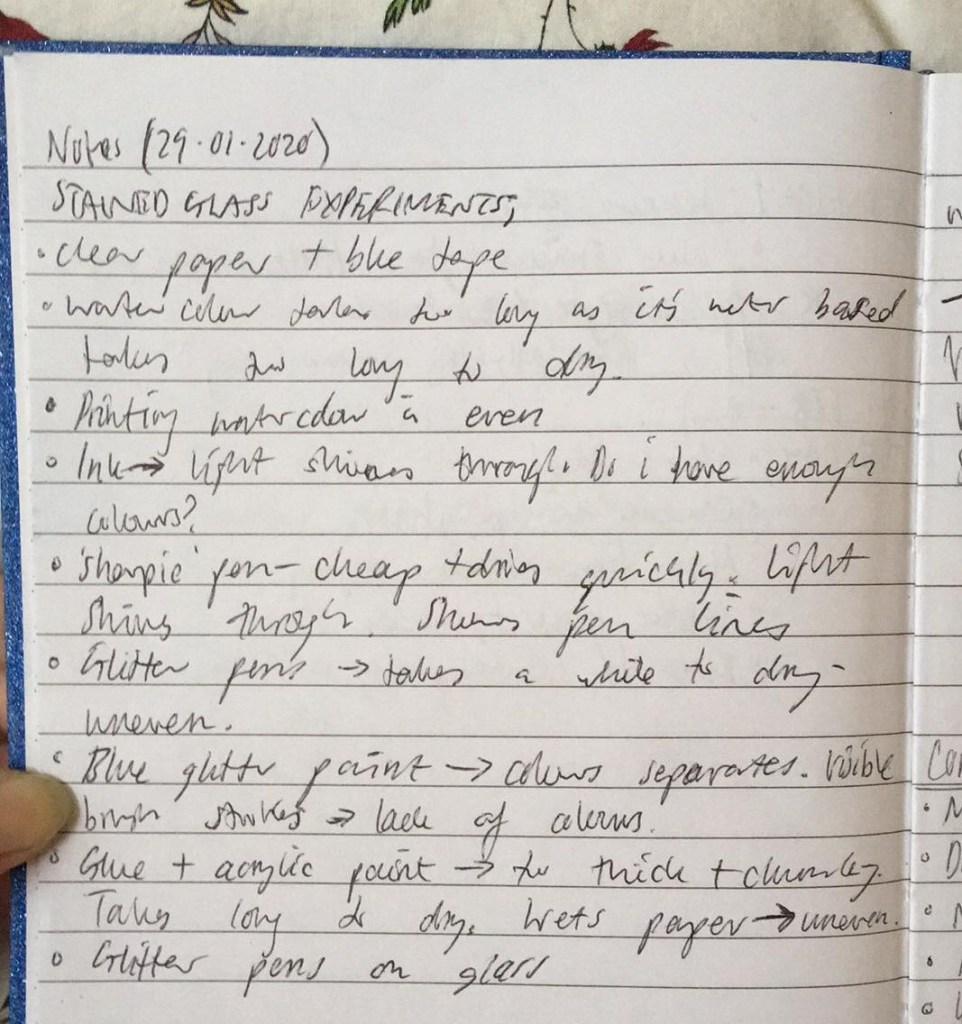 Notes (29.01.2020)
STAINED GLASS EXPERIMENTS;
• clear paper + blue tape
• water colour takes too long as it's water based
takes too long to dry.
• Printing watercolour is even
• Ink → light shines through. Do i have enough
colours?
• 'sharpie' pen - cheap + dries quickly. Light
shines through. Shows pen lines
• Glitter pens → takes a while to dry -
uneven.
• Blue glitter paint → colours separates. Visible
brush strokes → lack of colours.
• Glue + acrylic paint → too thick + chunky.
Takes long to dry. Wets paper → uneven.
• Glitter pens on glass